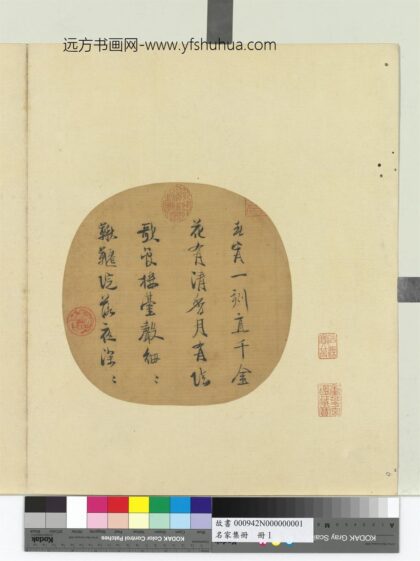 远方书画网-www.yfshuhua.com
春宵一刻直千金
花有清香月有陰
歌管樓臺聲細〻
鞦韆院落夜深〻
故書 000942N000000001
名家集冊 冊 1
KODAK Color Control Patches
KODAK Gray Scale